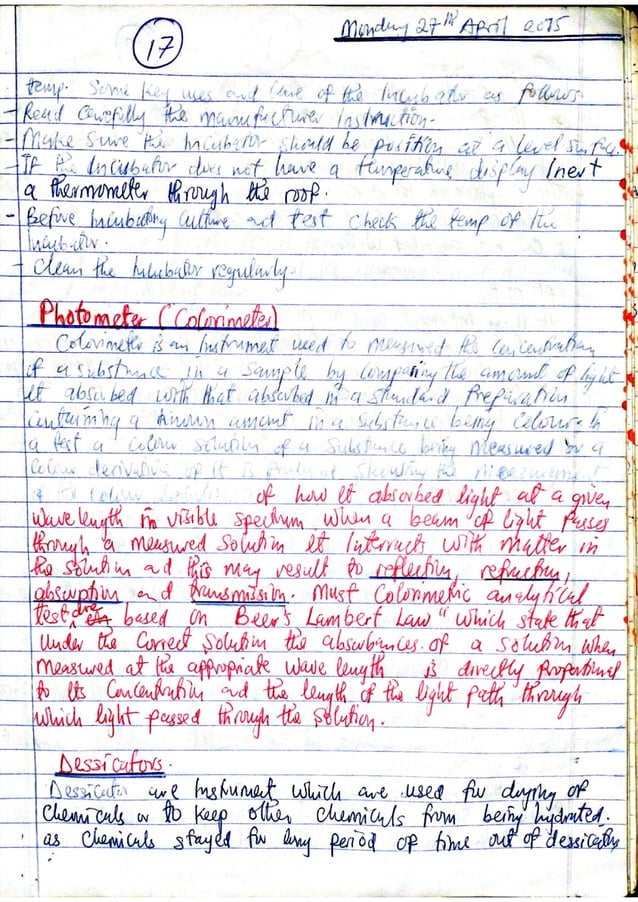 17
Monday 27th April 2015
temp. Some key uses and care of the Incubator as follows.
- Read carefully the manufacturer Instruction.
- Make sure the Incubator should be position at a level surface.
- If the Incubator does not have a temperature display Inert
a thermometer through the roof.
- Before Incubating culture and test check the temp of the
Incubator.
- Clean the Incubator regularly.
Photometer (Colorimeter)
Colorimeter is an Instrument used to measured the concentration
of a substance in a sample by comparing the amount of light
It absorbed with that absorbed in a standard Preparation
Containing a known amount in a substance being
a test a colour solution of a substance being measured or a
colour derivative of it is showing the measurement
of how It absorbed light at a given
wavelength in visible spectrum when a beam of light passes
through a measured solution It Interracts with matter in
the solution and this may result to reflection, refraction,
absorption and transmission. Must Colorimetric analytical
test are based on Beer's Lambert Law" which state that
Under the Correct Solution the absorbances of a solution when
measured at the appropriate wave length is directly proportional
to Its Concentration and the length of the light path through
which light passed through the solution.
Dessicators.
Dessicator are Instrument which are used for drying of
chemicals or to keep other chemicals from being hydrated.
as chemicals stayed for long period of time out of dessicators